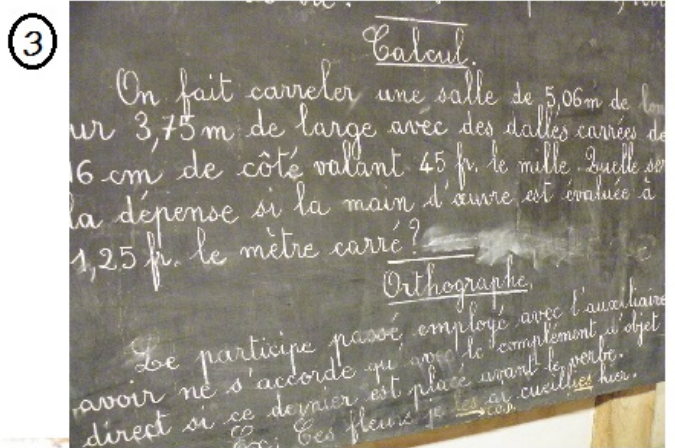 3
Calcul.
On fait carreler une salle de 5,06m de
3,75m de large avec des dalles carrées de
16 cm de côté valant 45 fr. le mille. Quelle
la dépense si la main d'œuvre est évaluée à
1,25 fr. le mètre carré?
Orthographe.
Le participe passé employé avec l'auxiliaire
avoir ne s'accorde qu'avec le complément d'objet
direct si ce dernier est placé avant le verbe.
Ex: Ces fleurs je les ai cueillies hier.